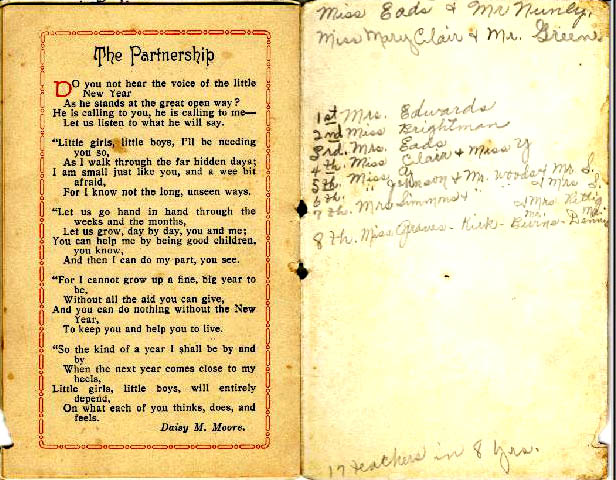 The Partnership
DO you not hear the voice of the little
New Year
As he stands at the great open way?
He is calling to you, he is calling to me—
Let us listen to what he will say.
"Little girls, little boys, I'll be needing
you so,
As I walk through the far hidden days;
I am small just like you, and a wee bit
afraid,
For I know not the long, unseen ways.
"Let us go hand in hand through the
weeks and the months,
Let us grow, day by day, you and me;
You can help me by being good children,
you know,
And then I can do my part, you see.
"For I cannot grow up a fine, big year to
be,
Without all the aid you can give,
And you can do nothing without the New
Year,
To keep you and help you to live.
"So the kind of a year I shall be by and
by
When the next year comes close to my
heels,
Little girls, little boys, will entirely
depend,
On what each of you thinks, does, and
feels.
Daisy M. Moore.
Miss Eads & Mr Nunly.
Miss Mary Clair & Mr. Green.
1st Mrs. Edwards
2nd Miss Brightman
3rd. Mrs. Eads
4th. Miss Clair & Miss Y
5th. Miss
6th. " Johnson & Mr. Woods & Mr. S.
7th. Mrs Simmons & " & Mrs. S.
& Mrs. Kittig
8th. Miss Graves - Kirk - Burns - Denny
17 teachers in 8 yrs.